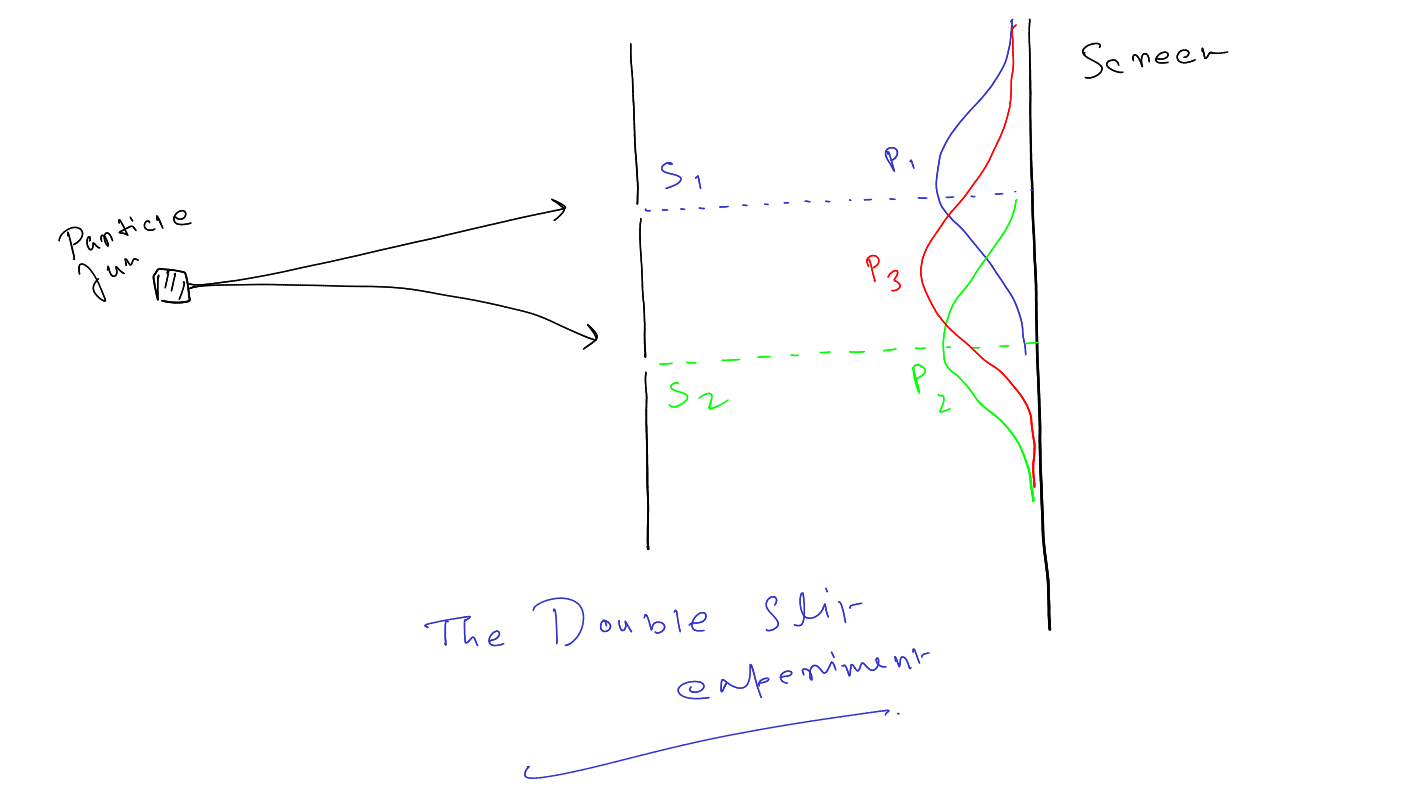 Screen
S1
P1
Particle
gun
P3
P2
S2
The Double Slit
experiment